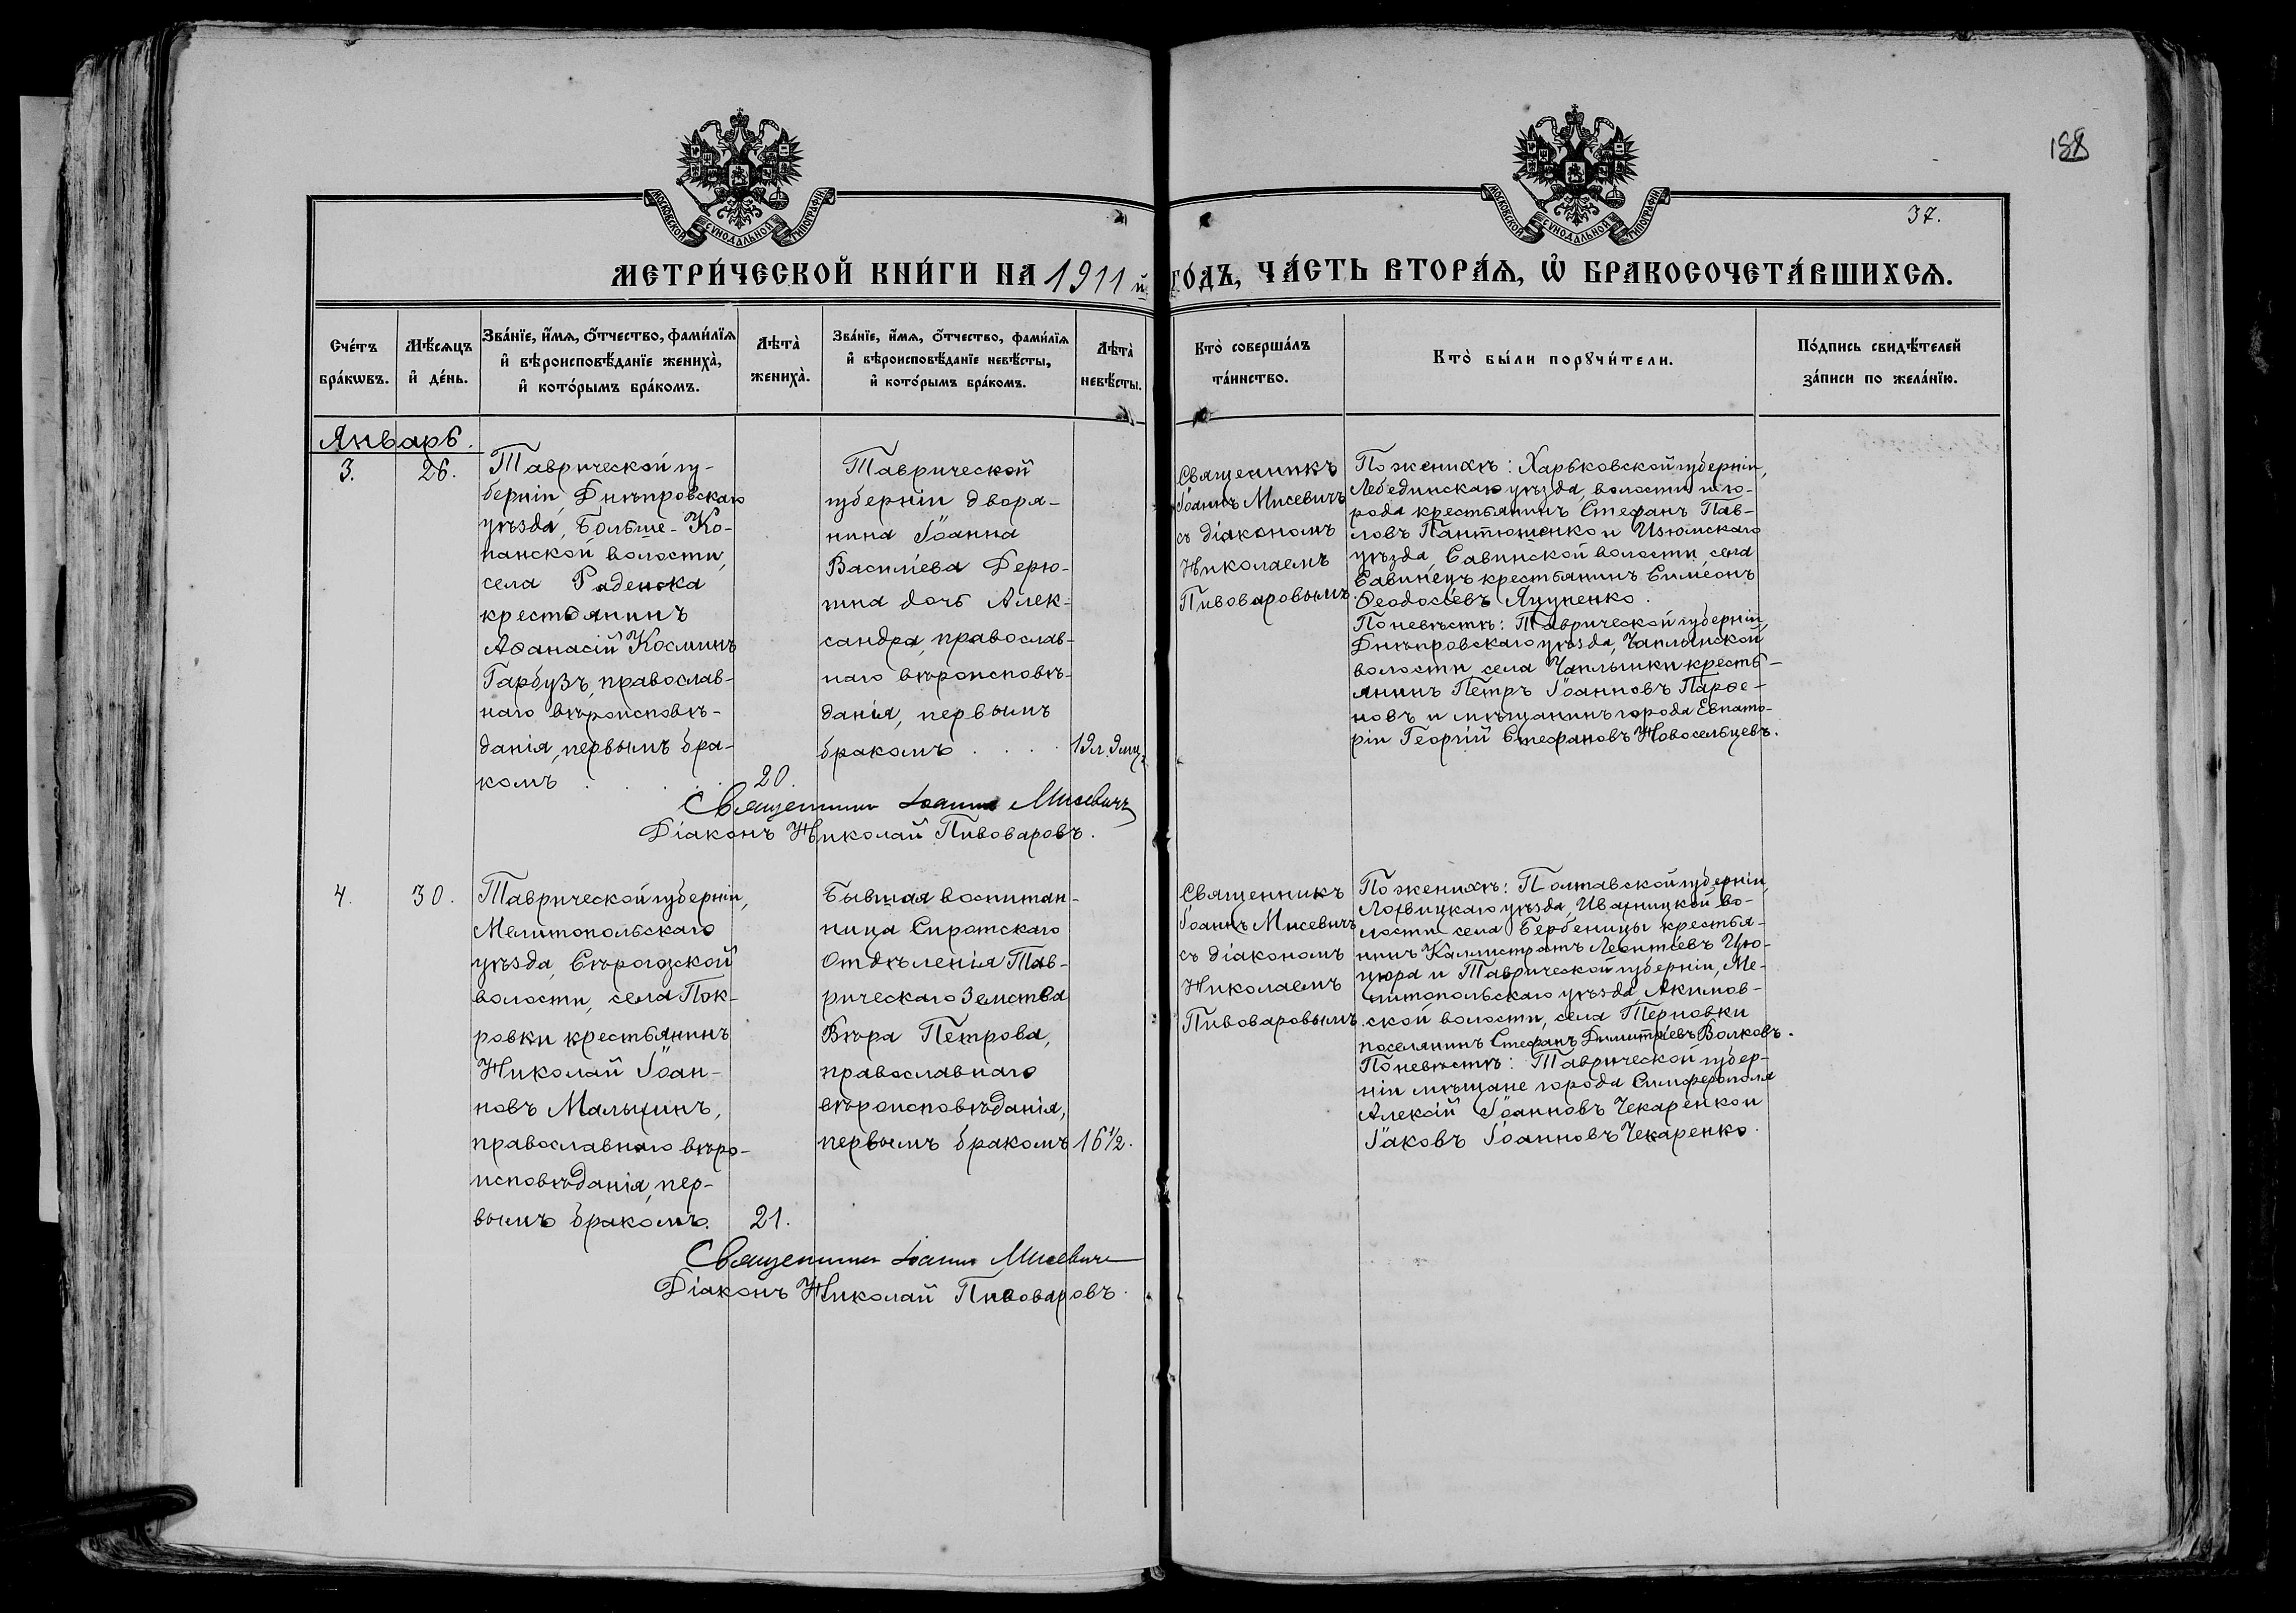 188
МОСКОВСКОЙ СѴНОДАЛЬНОЙ ТИПОГРАФІИ
МОСКОВСКОЙ СѴНОДАЛЬНОЙ ТИПОГРАФІИ
37.
МЕТРИ́ЧЕСКОЙ КНИ́ГИ НА 1911 й ГО́ДЪ, ЧА́СТЬ ВТОРА́Ѧ, Ѡ҆ БРАКОСОЧЕТА́ВШИХСѦ.
Сче́тъ
бра́кѡвъ.
Мѣ́сѧцъ
и҆ де́нь.
Зва́нїе, и҆́мѧ, ѻ҆́тчество, фами́лїѧ
и҆ вѣроисповѣ́данїе жениха̀,
и҆ кото́рымъ бра́комъ.
Лѣта̀
жениха̀.
Зва́нїе, и҆́мѧ, ѻ҆́тчество, фами́лїѧ
и҆ вѣроисповѣ́данїе невѣ́сты,
и҆ кото́рымъ бра́комъ.
Лѣта̀
невѣ́сты.
Кто̀ соверша́лъ
та́инство.
Кто̀ бы́ли порꙋчи́тели.
По́дпись свидѣ́телей
за́писи по жела́нїю.
Январь.
3.
26.
Таврической гу-
берніи, Днѣпровскаго
уѣзда, Больше-Ко-
панской волости,
села Раденска
крестьянинъ
Аѳанасій Косминъ
Гарбузъ, православ-
наго вѣроисповѣ-
данія, первымъ бра-
комъ . . . .
20.
Таврической
губерніи дворя-
нина Іоанна
Василіева Дерю-
гина дочь Алек-
сандра, православ-
наго вѣроисповѣ-
данія, первымъ
бракомъ . . . .
19л. 9мц.
Священникъ
Іоаннъ Мисевичъ
съ діакономъ
Николаемъ
Пивоваровымъ
По женихѣ: Харьковской губерніи,
Лебединскаго уѣзда, волости и го-
рода крестьянинъ Стефанъ Пав-
ловъ Пантюшенко и Изюмскаго
уѣзда, Савинской волости, села
Савинецъ крестьянинъ Симеонъ
Ѳеодосіевъ Яцуненко.
По невѣстѣ: Таврической губерніи,
Днѣпровскаго уѣзда, Чаплынской
волости, села Чаплынки кресть-
янинъ Петръ Іоанновъ Парѳе-
новъ и мѣщанинъ города Евпато-
ріи Георгій Стефановъ Новосельцевъ.
Священникъ Іоаннъ Мисевичъ
Діаконъ Николай Пивоваровъ.
4.
30.
Таврической губерніи,
Мелитопольскаго
уѣзда, Сѣрогозской
волости, села Пок-
ровки крестьянинъ
Николай Іоан-
новъ Малыхинъ,
православнаго вѣро-
исповѣданія, пер-
вымъ бракомъ.
21.
Бывшая воспитан-
ница Сиротскаго
Отдѣленія Тав-
рическаго Земства
Вѣра Петрова,
православнаго
вѣроисповѣданія,
первымъ бракомъ
16 1/2.
Священникъ
Іоаннъ Мисевичъ
съ діакономъ
Николаемъ
Пивоваровымъ.
По женихѣ: Полтавской губерніи,
Лохвицкаго уѣзда, Ивахницкой во-
лости, села Бербеницы крестья-
нинъ Каллистратъ Леонтіевъ Цю-
цюра и Таврической губерніи, Ме-
литопольскаго уѣзда, Акимов-
ской волости, села Терновки
поселянинъ Стефанъ Димитріевъ Волковъ.
По невѣстѣ: Таврической губер-
ніи мѣщане города Симферополя
Алексій Іоанновъ Чекаренко и
Іаковъ Іоанновъ Чекаренко.
Священникъ Іоаннъ Мисевичъ
Діаконъ Николай Пивоваровъ.